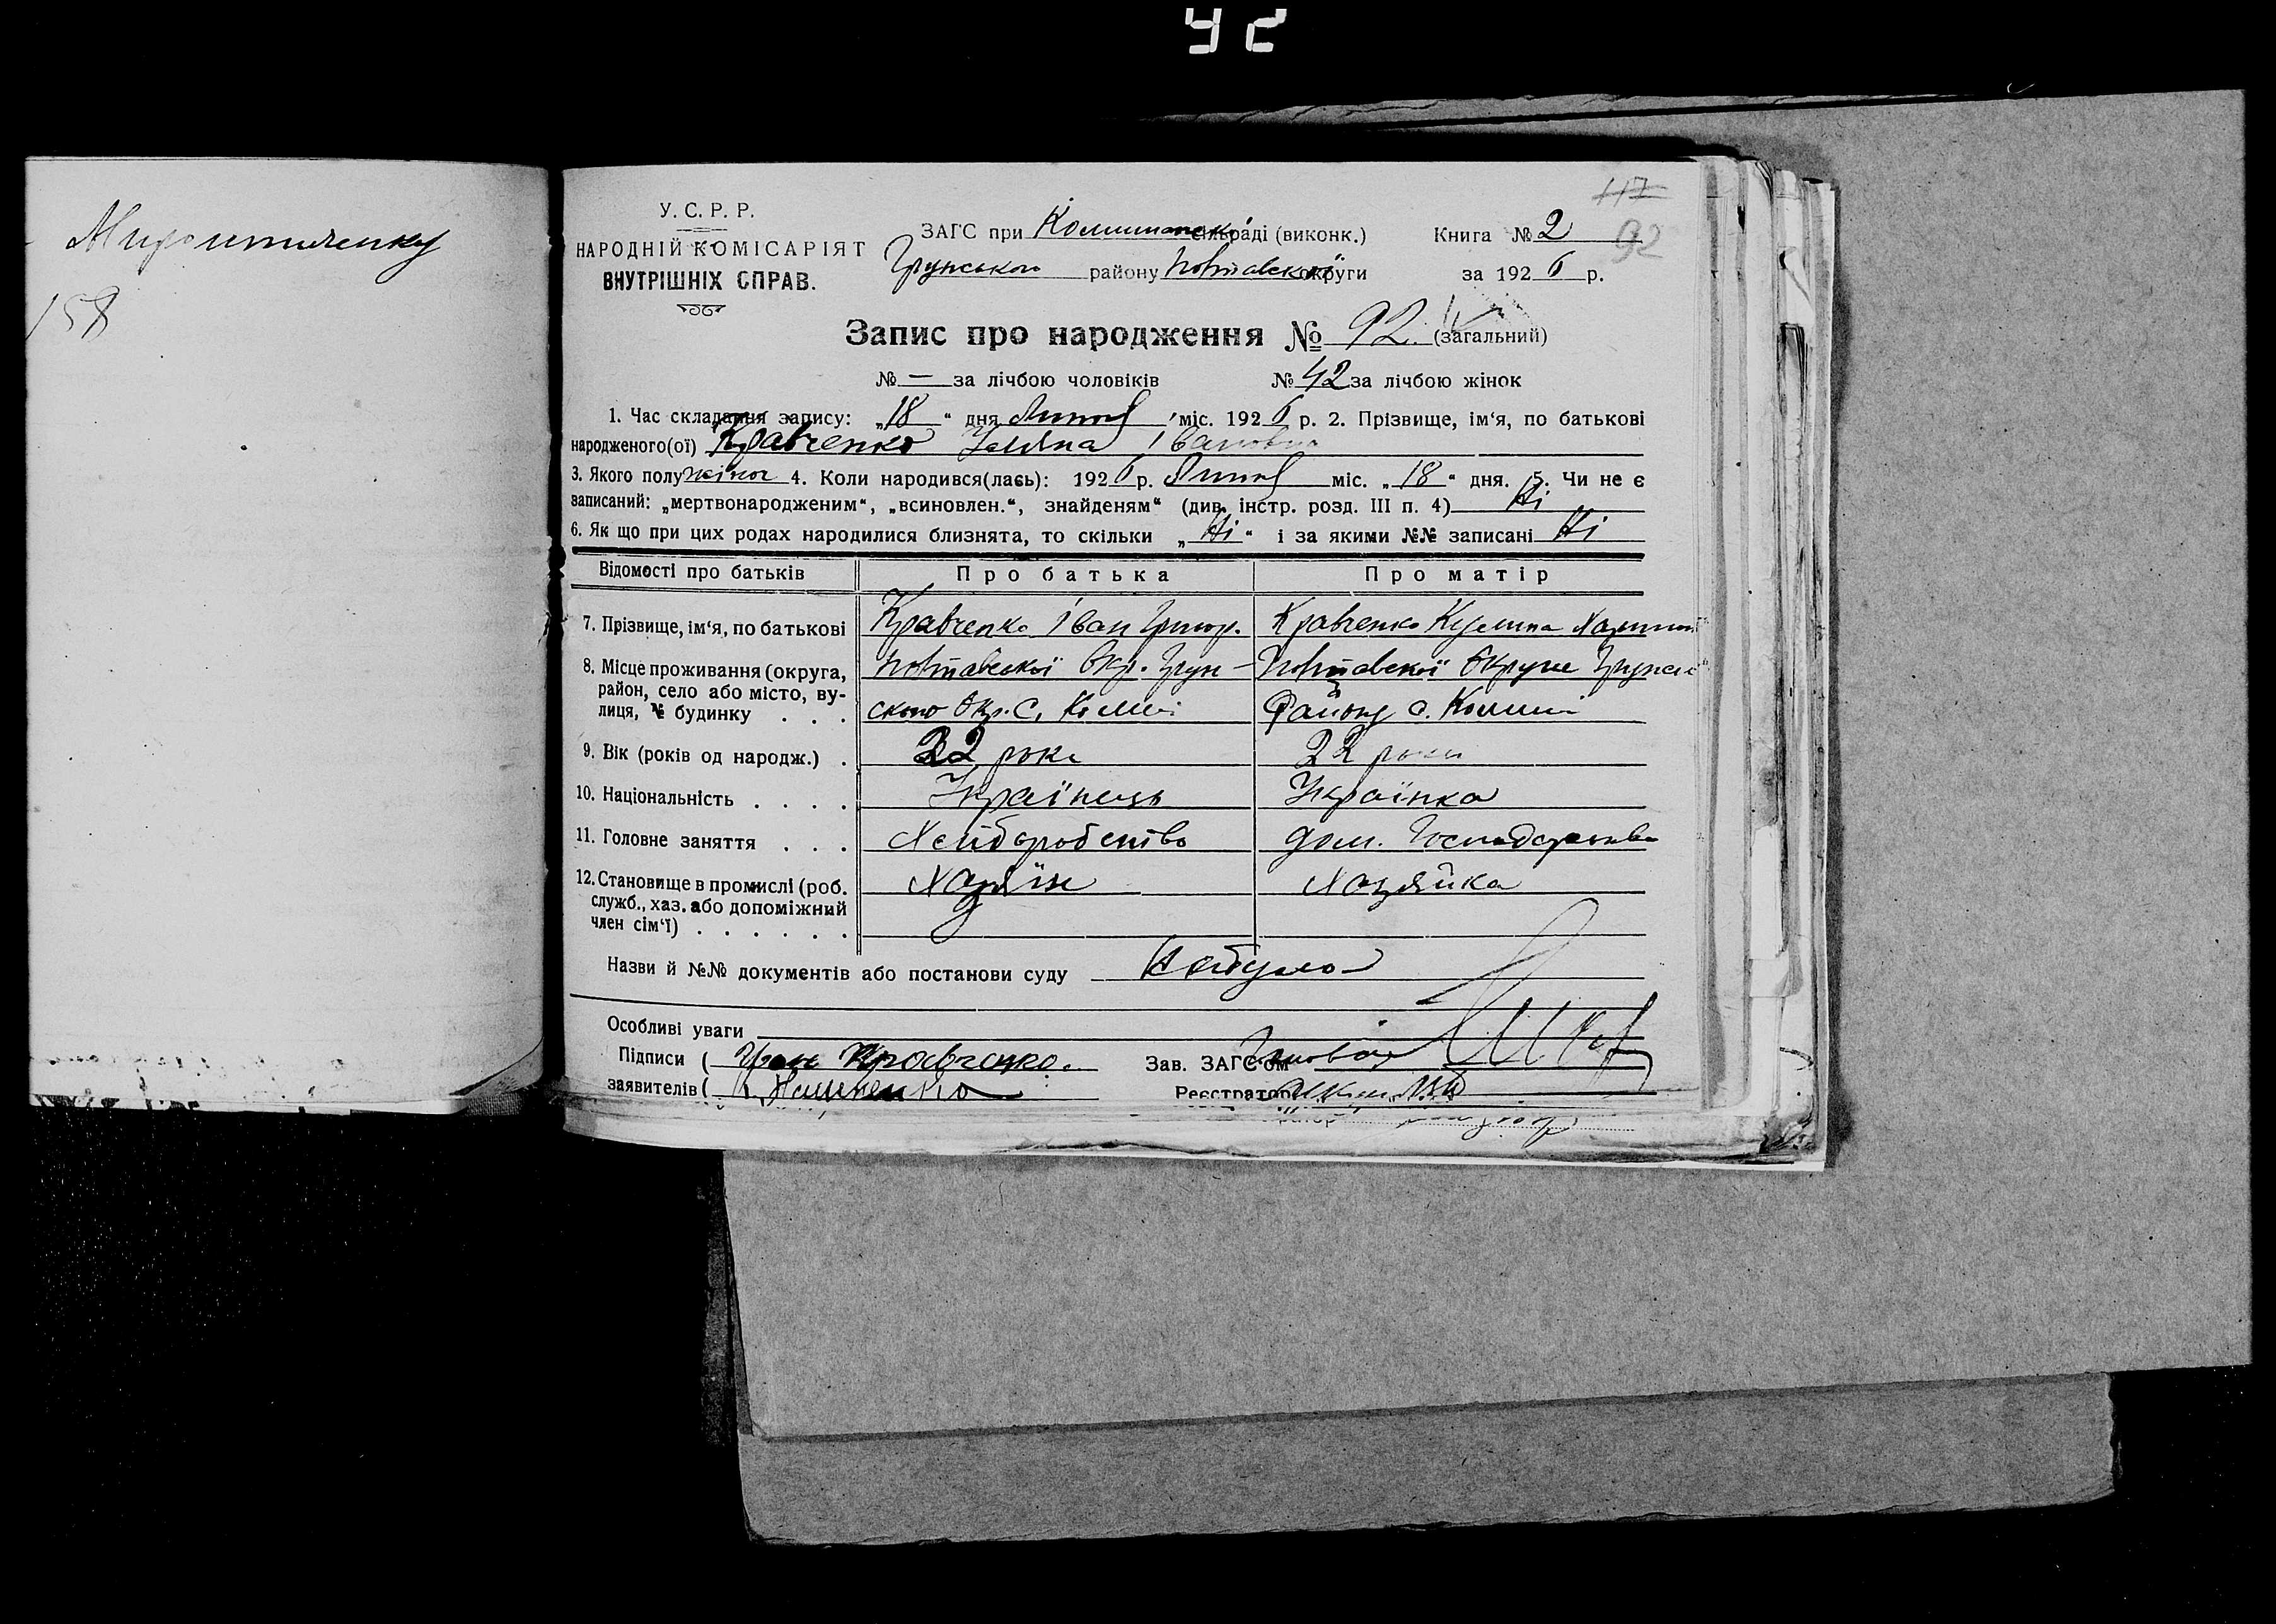 92
Мирошниченку
158
117
92
У. С. Р. Р.
НАРОДНІЙ КОМІСАРІЯТ
ВНУТРІШНІХ СПРАВ.
ЗАГС при сільраді (виконк.)
Грунського району Полтавської округи
Книга № 2
за 1926 р.
Запис про народження № 92. (загальний)
№ — за лічбою чоловіків № 42 за лічбою жінок
1. Час складання запису: „18“ дня Липня міс. 1926 р. 2. Прізвище, ім‘я, по батькові
народженого(ої) Кравченко Уляна Івановна
3. Якого полу жіноч 4. Коли народився(лась): 1926 р. Липня міс. „18“ дня. 5. Чи не є
записаний: „мертвонародженим“, „всиновлен.“, знайденям“ (див. інстр. розд. III п. 4) Ні
6. Як що при цих родах народилися близнята, то скільки „Ні“ і за якими №№ записані Ні
Відомості про батьків Про батька Про матір
7. Прізвище, ім‘я, по батькові Кравченко Іван Григор. Кравченко
8. Місце проживання (округа, Полтавської Окр. Грун- Полтавської Округи Грунськ
район, село або місто, ву- ского Окр. С. Коміші Району с. Коміші
лиця, № будинку . . .
9. Вік (років од народж.) . 22 роки 22 роки
10. Національність . . . . Українець Українка
11. Головне заняття . . . Хліборобство дом. Господарство
12. Становище в промислі (роб. Хазяїн Хазяйка
служб., хаз. або допоміжний
член сім‘ї) . . . . . .
Назви й №№ документів або постанови суду Небуло
Особливі уваги
Підписи ( Іван Кравченко. Зав. ЗАГС‘ом
заявителів ( Реєстратор